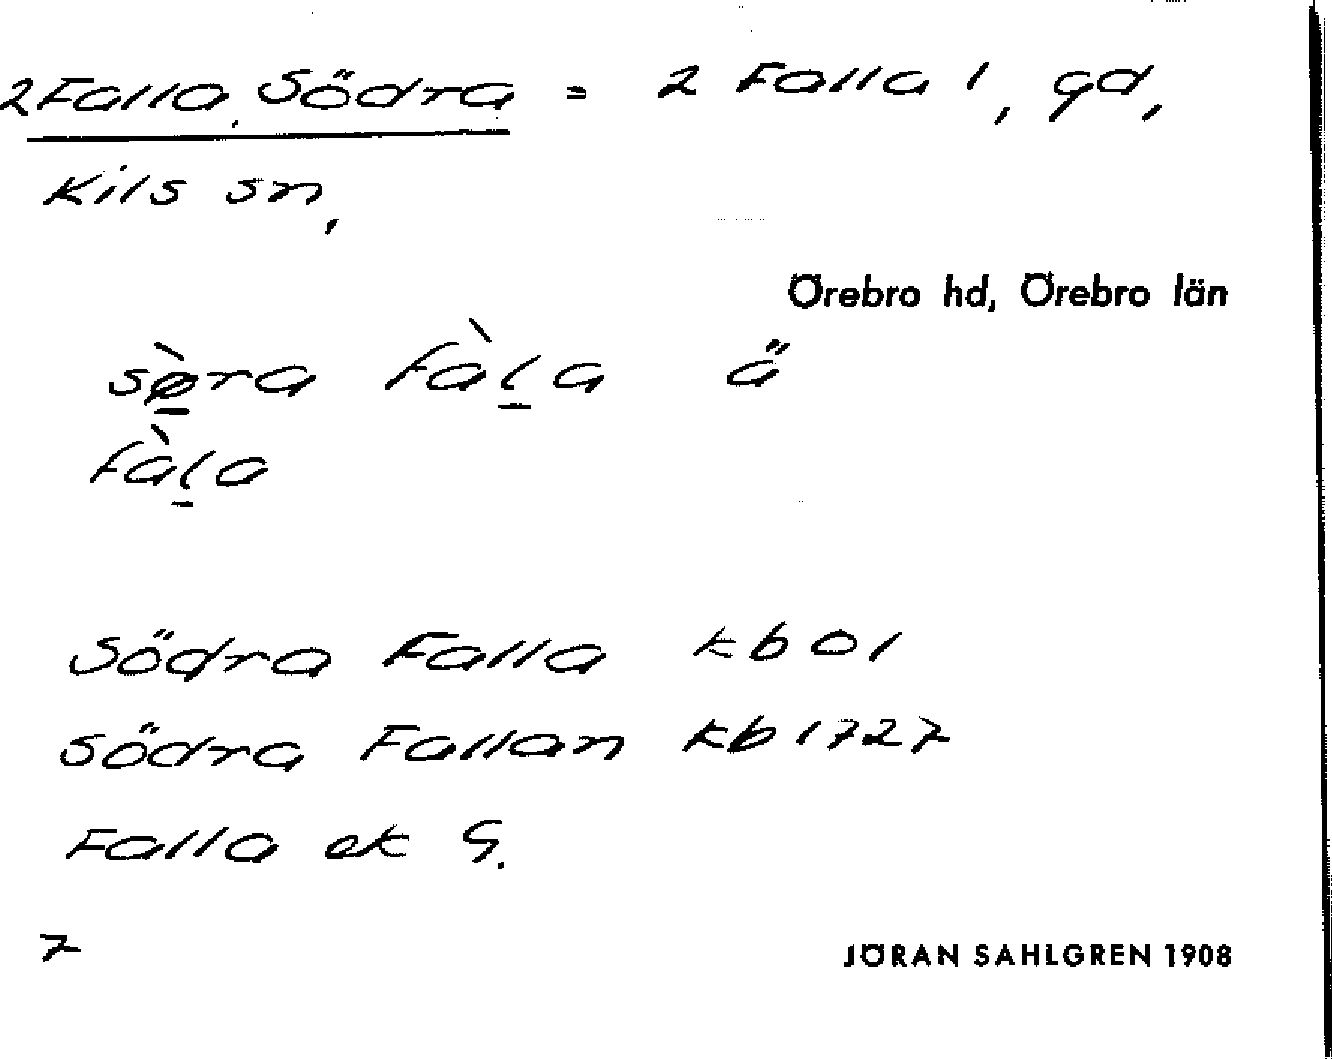 2 Falla, Södra = 2 Falla 1, gd,
Kils sn,
Örebro hd, Örebro län
sø̀ra fàla ä
fàla
Södra Falla kb 01
Södra Fallan kb 1727
Falla ek G.
7
JÖRAN SAHLGREN 1908